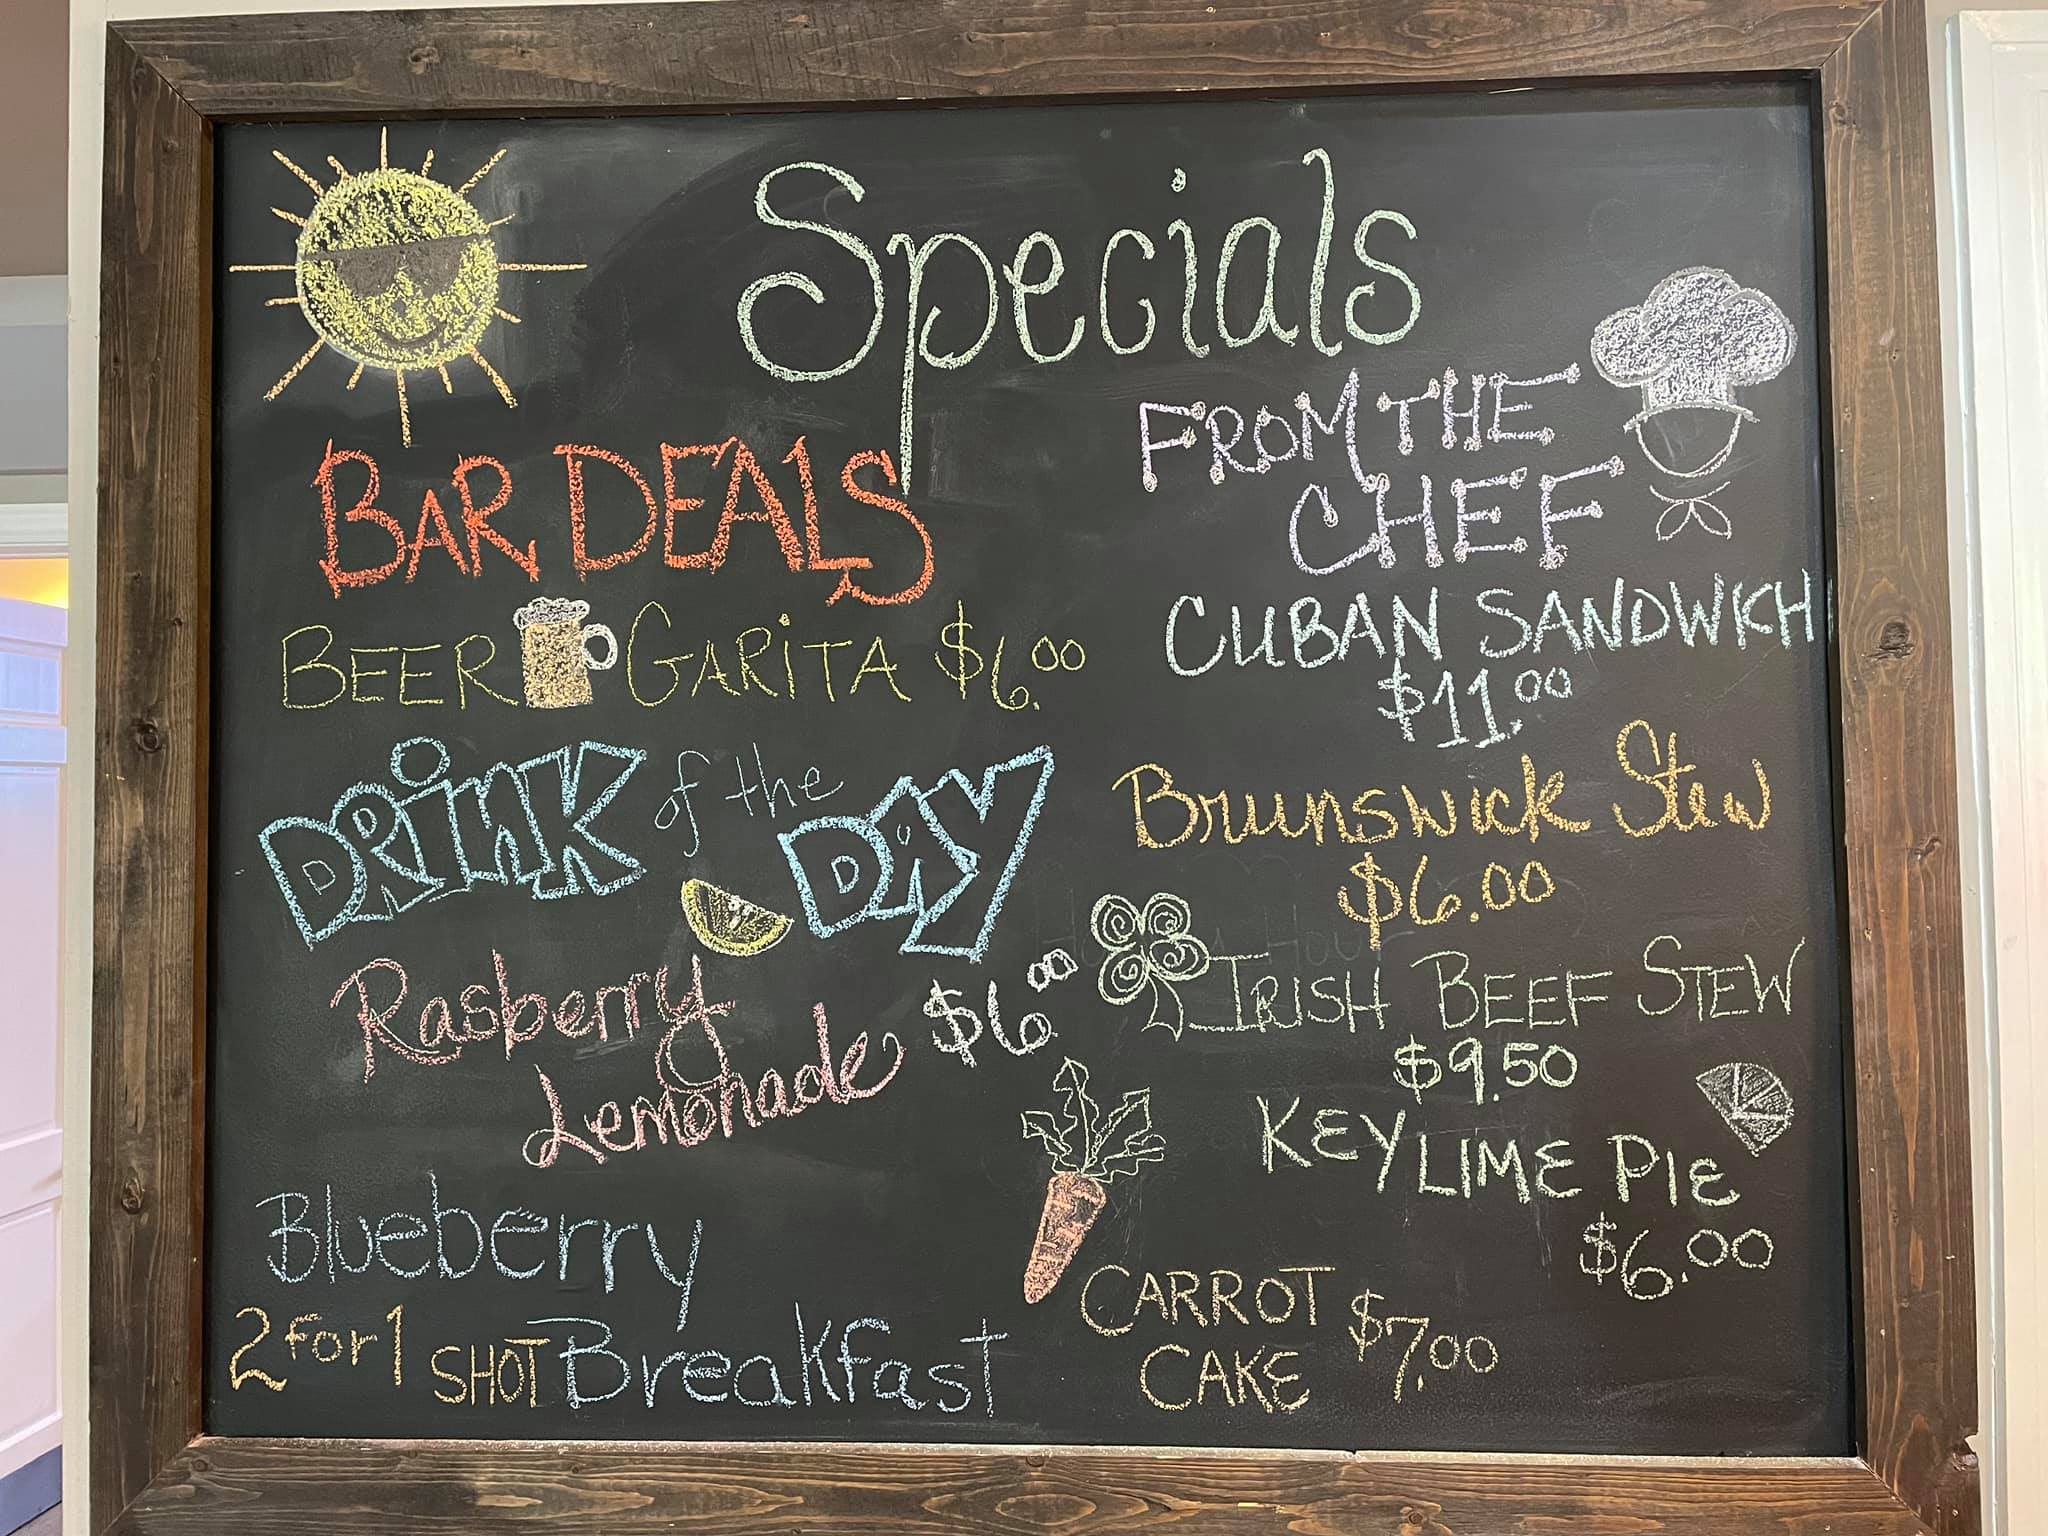 Specials
BAR DEALS
BEER GARiTA $6.00
DRiNK of the DAY
Rasberry
Lemonade $6.00
Blueberry
2 for 1 SHOT Breakfast
FROM THE
CHEF
CUBAN SANDWICH
$11.00
Brunswick Stew
$6.00
IRISH BEEF STEW
$9.50
KEY LIME PIE
$6.00
CARROT
CAKE $7.00